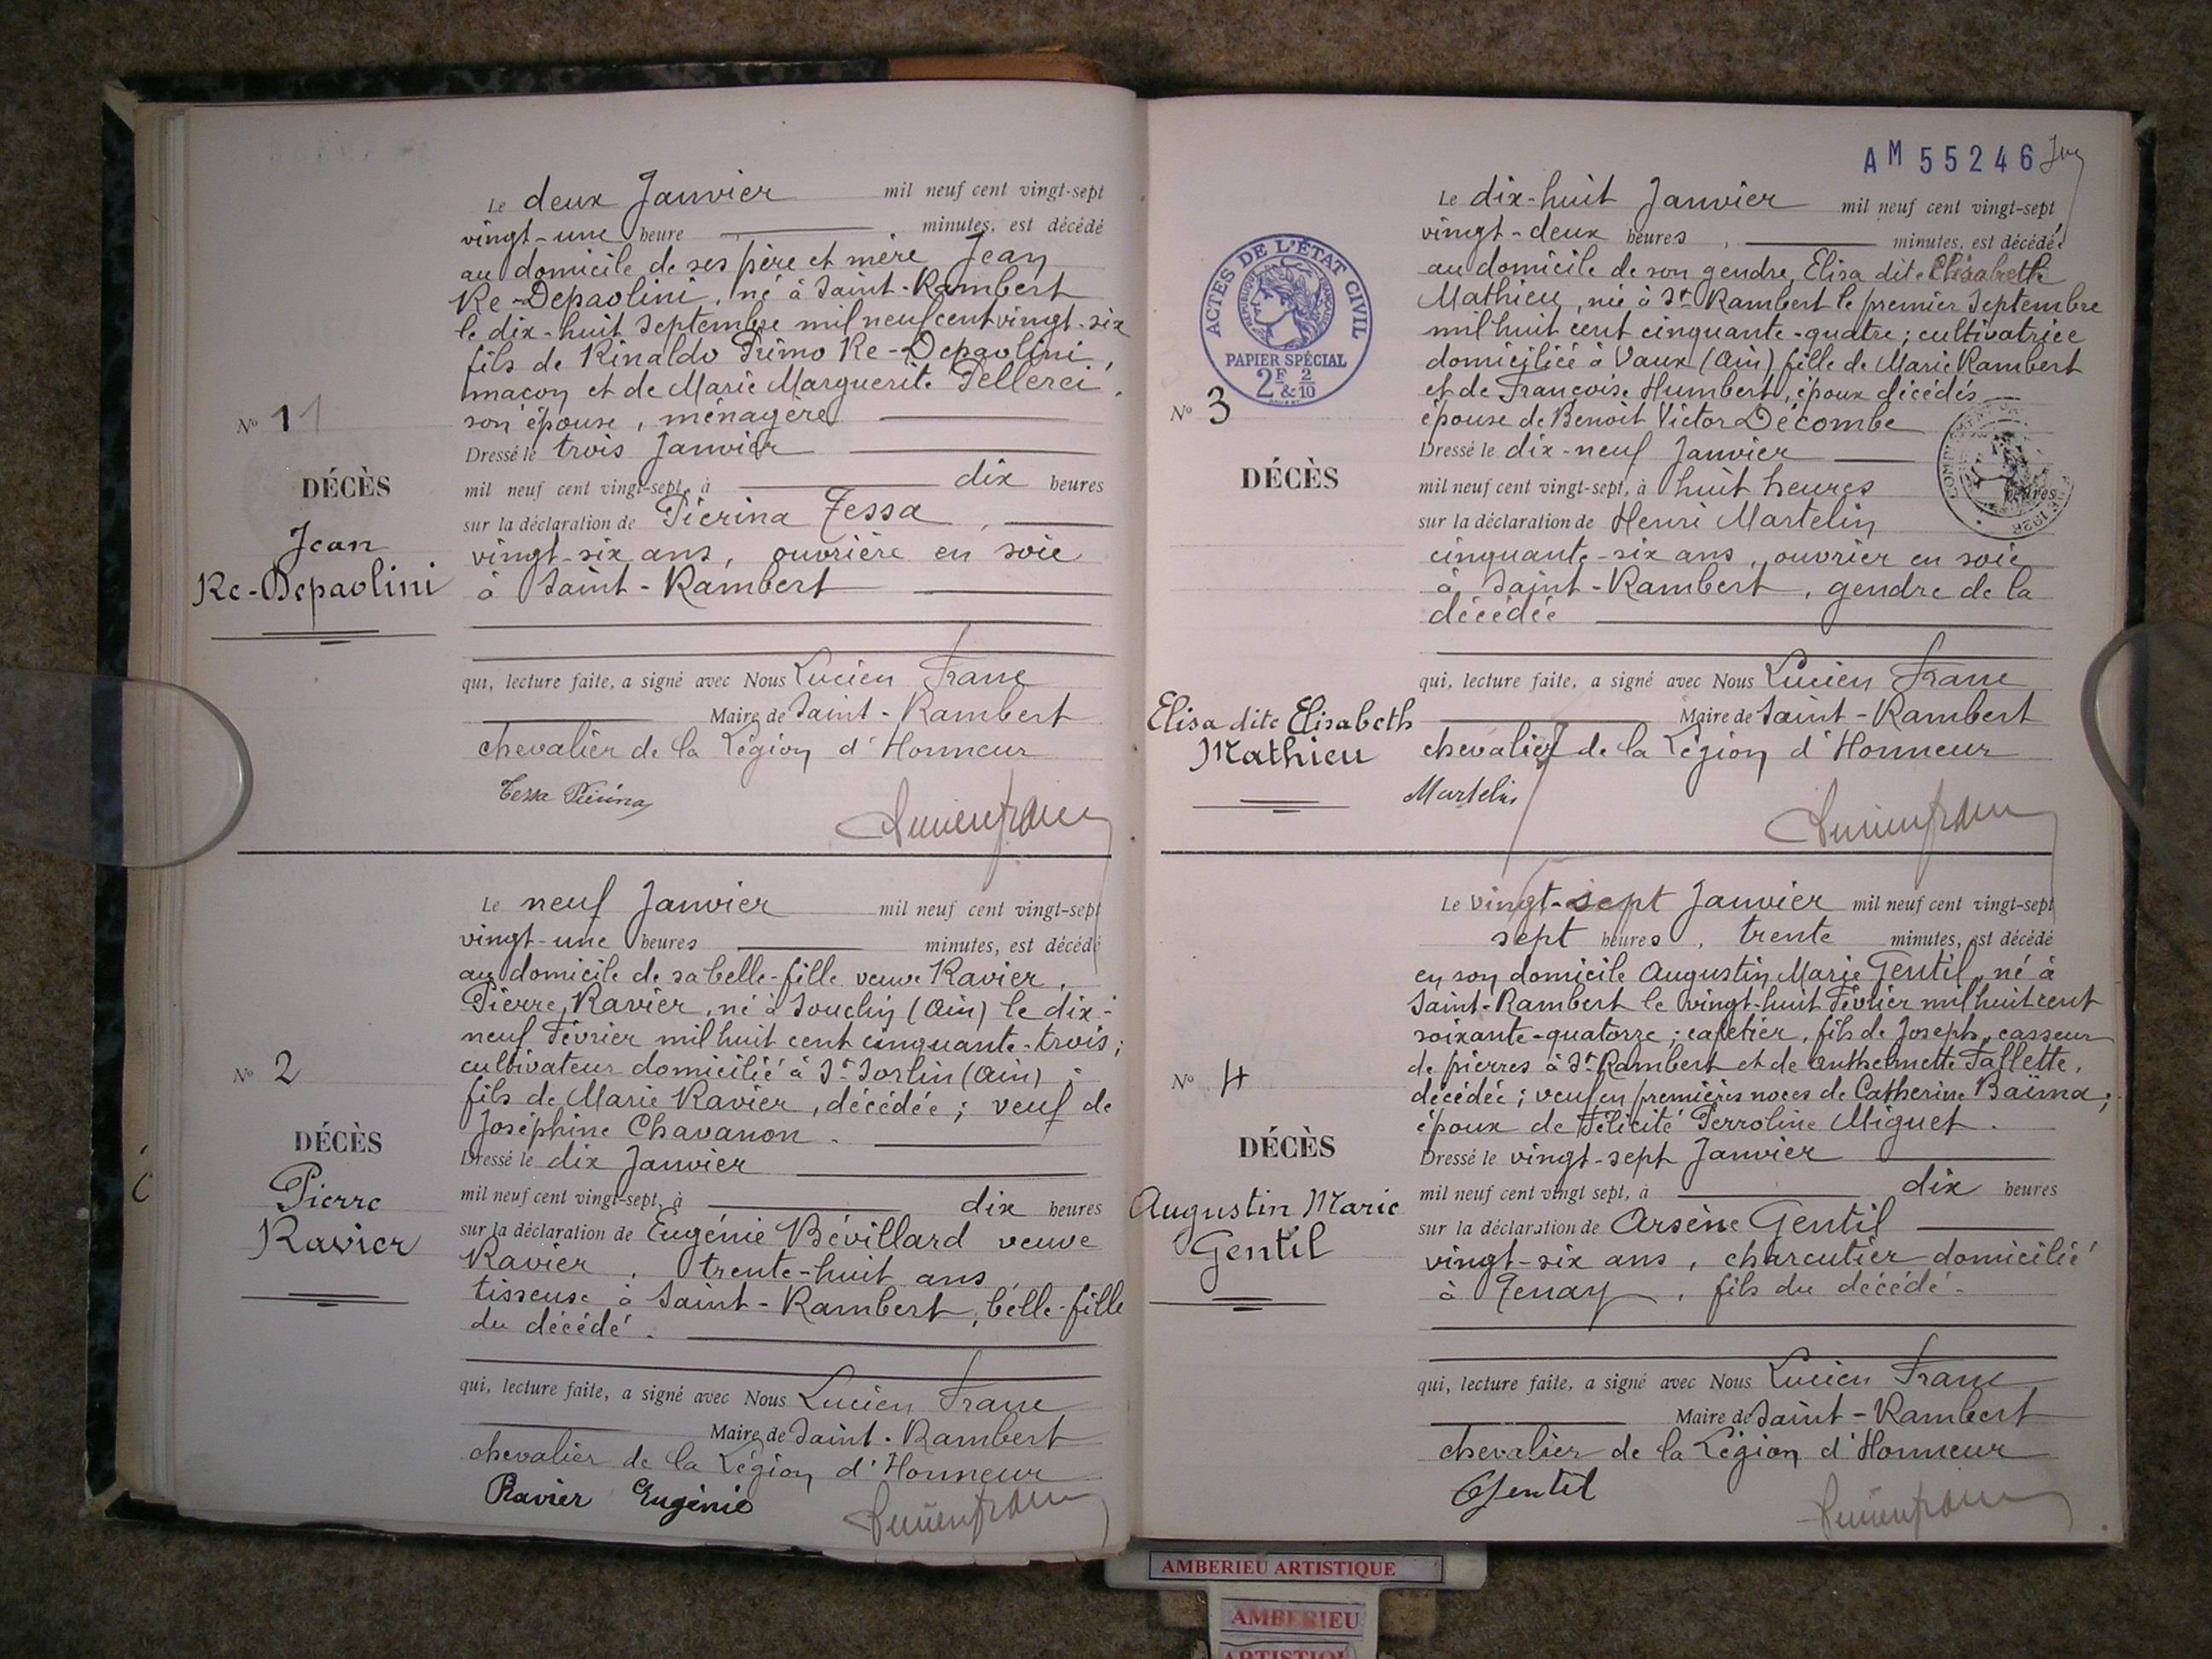 Le deux Janvier mil neuf cent vingt-sept
vingt-une heure minutes, est décédé
au domicile de ses père et mère Jean
Re-Depaolini, né à Saint-Rambert
le dix-huit Septembre mil neuf cent vingt-six
fils de Rinaldo Primo Re-Depaolini,
maçon et de Marie Marguerite Pellerei,
son épouse, ménagère
Dressé le trois Janvier
mil neuf cent vingt-sept, à dix heures
sur la déclaration de Pierina Tessa,
vingt-six ans, ouvrière en soie
à Saint-Rambert
qui, lecture faite, a signé avec Nous Lucien Franc
Maire de Saint-Rambert
chevalier de la Légion d'Honneur
Tessa Pierina
Lucien Franc
No 1
DÉCÈS
Jean
Re-Depaolini
Le neuf Janvier mil neuf cent vingt-sept
vingt-une heures minutes, est décédé
au domicile de sa belle-fille veuve Ravier,
Pierre Ravier, né à Souclin (Ain) le dix-
neuf Février mil huit cent cinquante-trois;
cultivateur domicilié à St Sorlin (Ain);
fils de Marie Ravier, décédée; veuf de
Joséphine Chavanon.
Dressé le dix Janvier
mil neuf cent vingt-sept, à dix heures
sur la déclaration de Eugénie Bévillard veuve
Ravier, trente-huit ans,
tisseuse à Saint-Rambert, belle-fille
du décédé.
qui, lecture faite, a signé avec Nous Lucien Franc
Maire de Saint-Rambert
chevalier de la Légion d'Honneur
Ravier Eugénie
Lucien Franc
No 2
DÉCÈS
Pierre
Ravier
AM 55246
ACTES DE L'ÉTAT CIVIL
RÉPUBLIQUE FRANÇAISE
PAPIER SPÉCIAL
2F & 2/10
Le dix-huit Janvier mil neuf cent vingt-sept
vingt-deux heures, minutes, est décédée
au domicile de son gendre, Elisa dite Elisabeth
Mathieu, née à St Rambert le premier Septembre
mil huit cent cinquante-quatre; cultivatrice
domiciliée à Vaux (Ain) fille de Marie Rambert
et de Françoise Humbert, époux décédés
épouse de Benoit Victor Décombe
Dressé le dix-neuf Janvier
mil neuf cent vingt-sept, à huit heures heures
sur la déclaration de Henri Martelin
cinquante-six ans, ouvrier en soie
à Saint-Rambert, gendre de la
décédée
qui, lecture faite, a signé avec Nous Lucien Franc
Maire de Saint-Rambert
chevalier de la Légion d'Honneur
Martelin
Lucien Franc
No 3
DÉCÈS
Elisa dite Elisabeth
Mathieu
Le vingt-sept Janvier mil neuf cent vingt-sept
sept heures, trente minutes, est décédé
en son domicile Augustin Marie Gentil, né à
Saint-Rambert le vingt-huit Février mil huit cent
soixante-quatorze; cafetier, fils de Joseph, casseur
de pierres à St Rambert et de Anthelmette Fallette,
décédée; veuf en premières noces de Catherine Baïma;
époux de Félicité Perroline Miguet.
Dressé le vingt-sept Janvier
mil neuf cent vingt sept, à dix heures
sur la déclaration de Arsène Gentil
vingt-six ans, charcutier domicilié
à Tenay, fils du décédé.
qui, lecture faite, a signé avec Nous Lucien Franc
Maire de Saint-Rambert
chevalier de la Légion d'Honneur
Gentil
Lucien Franc
No 4
DÉCÈS
Augustin Marie
Gentil
AMBERIEU ARTISTIQUE
AMBERIEU
ARTISTIQUE